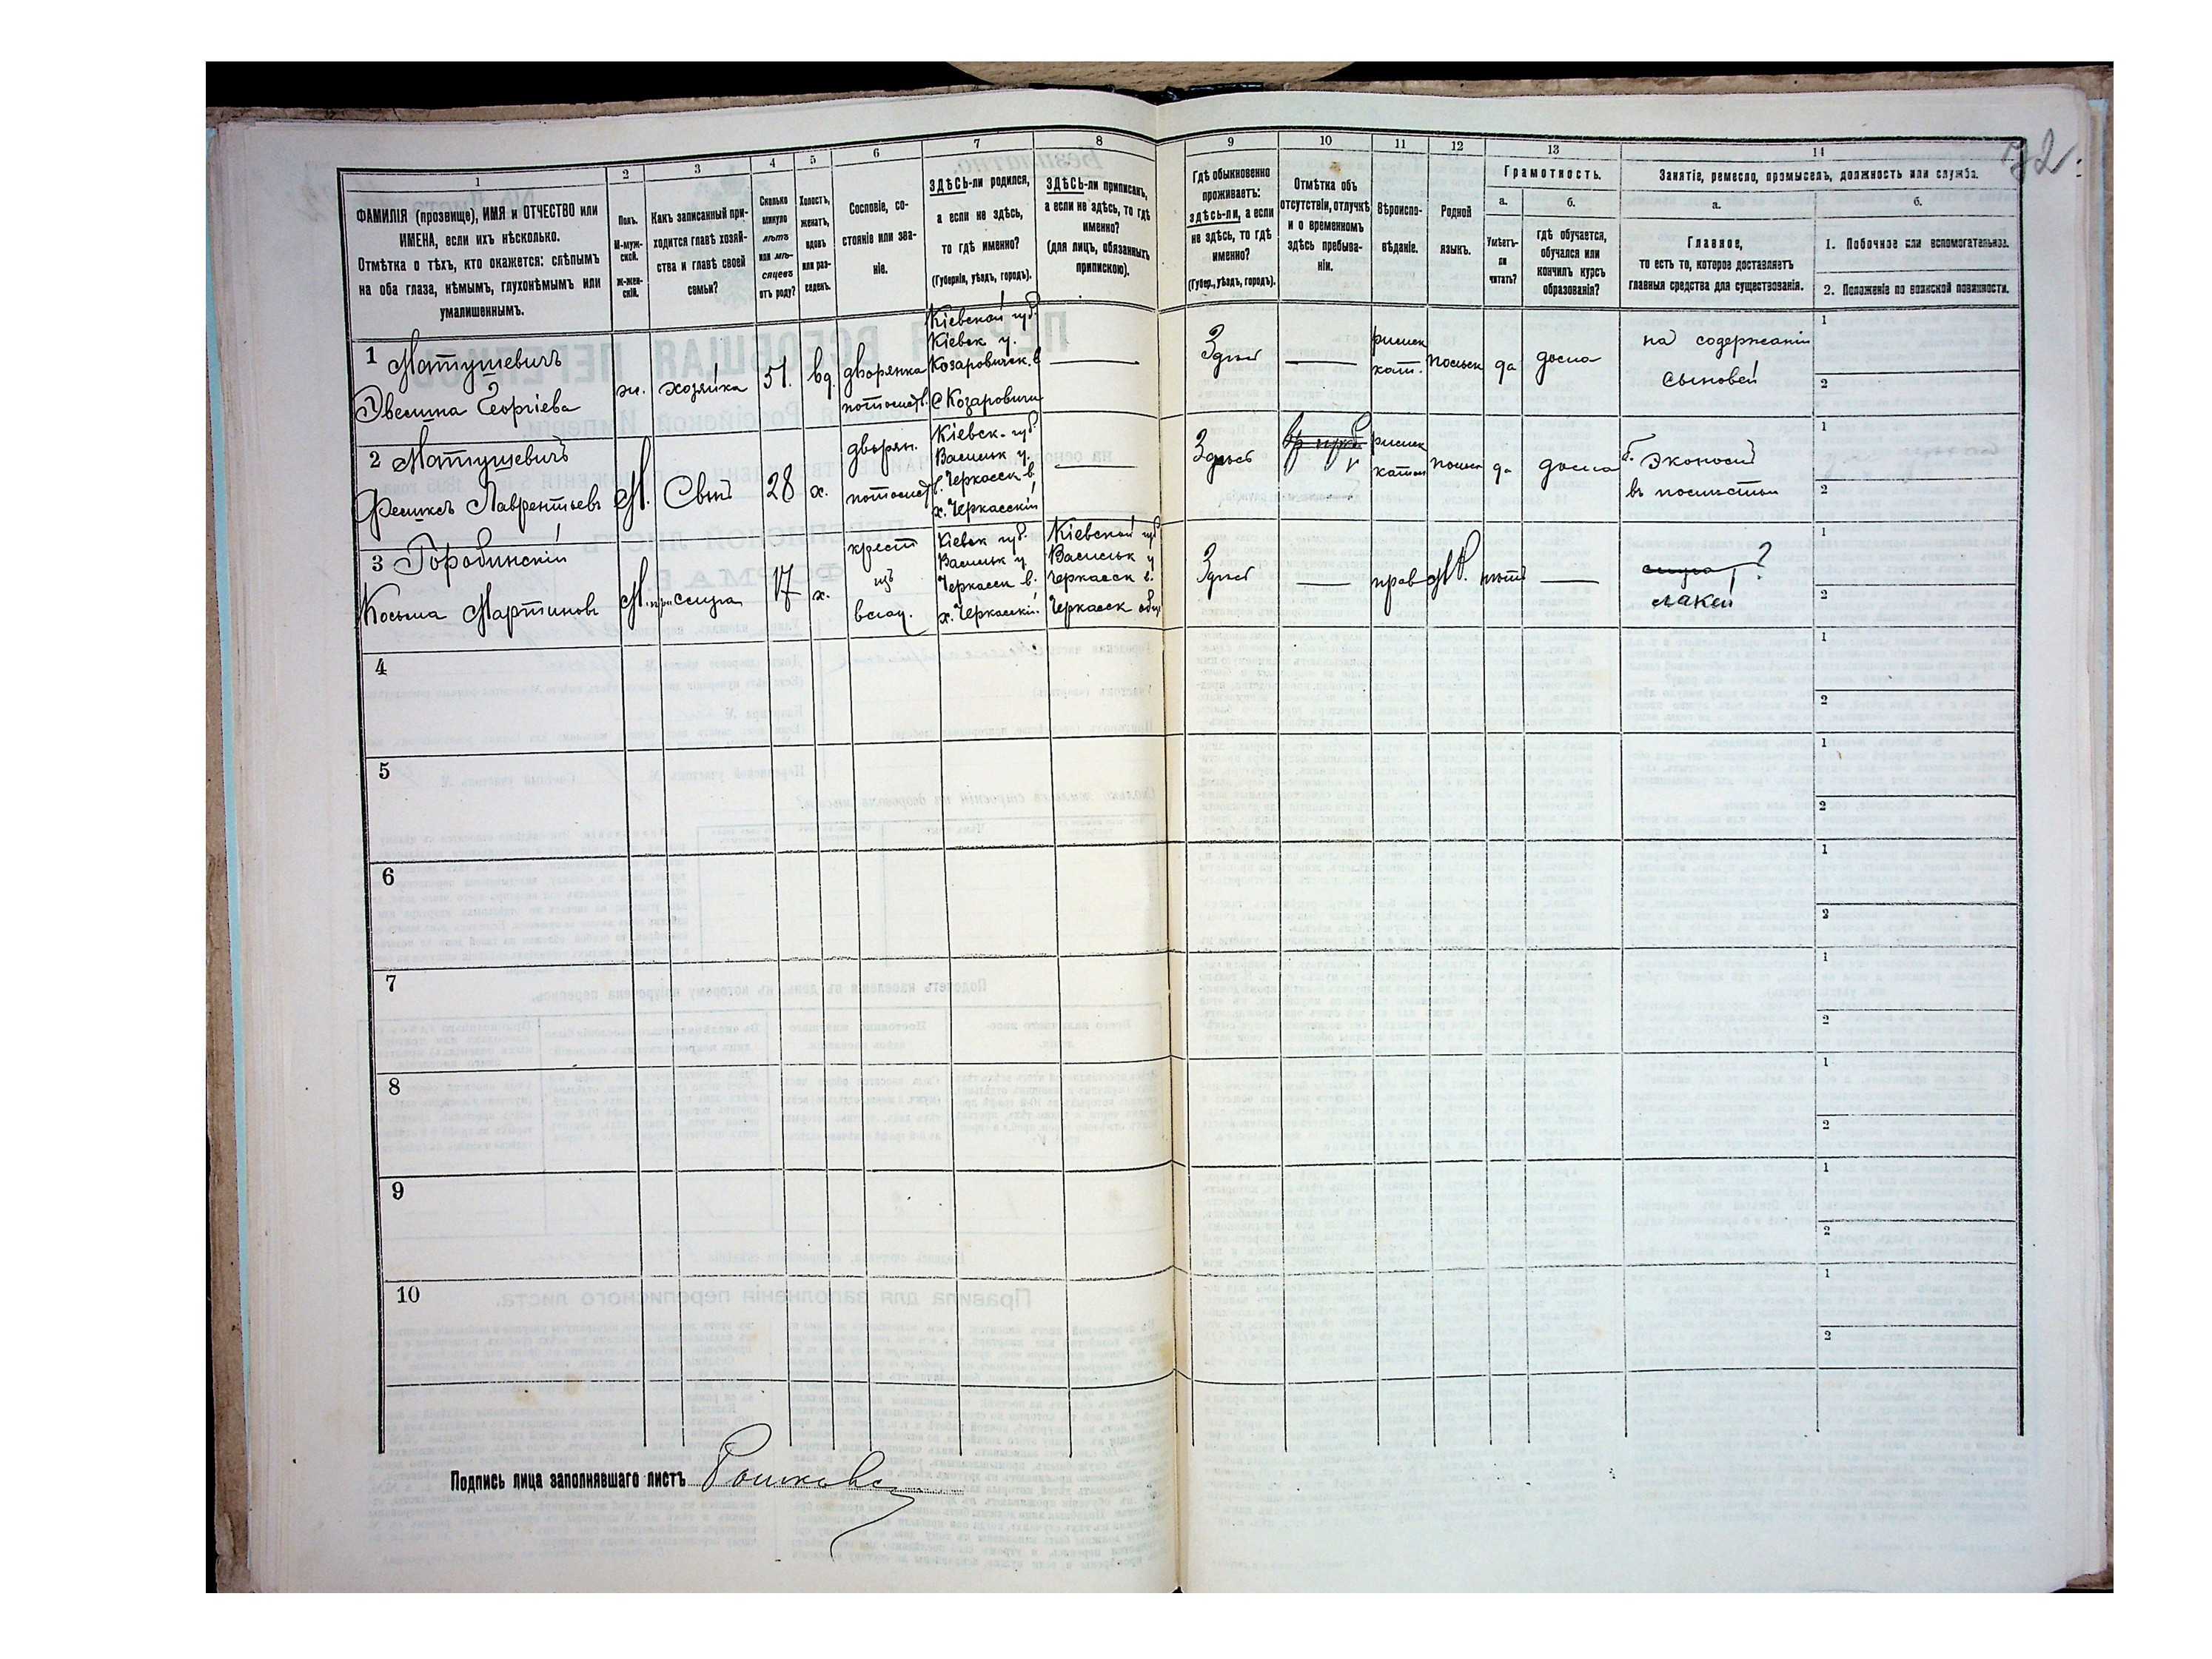 32.
1
2
3
4
5
6
7
8
9
10
11
12
13
14
ФАМИЛІЯ (прозвище), ИМЯ и ОТЧЕСТВО или
ИМЕНА, если ихъ нѣсколько.
Отмѣтка о тѣхъ, кто окажется: слѣпымъ
на оба глаза, нѣмымъ, глухонѣмымъ или
умалишеннымъ.
Полъ.
М-муж-
ской.
Ж-жен-
скій.
Какъ записанный при-
ходится главѣ хозяй-
ства и главѣ своей
семьи?
Сколько
минуло
лѣтъ
или мѣ-
сяцевъ
отъ роду?
Холостъ,
женатъ,
вдовъ
или раз-
веденъ.
Сословіе, со-
стояніе или зва-
ніе.
ЗДѢСЬ-ли родился,
а если не здѣсь,
то гдѣ именно?
(Губернія, уѣздъ, городъ).
ЗДѢСЬ-ли приписанъ,
а если не здѣсь, то гдѣ
именно?
(для лицъ, обязанныхъ
припискою).
Гдѣ обыкновенно
проживаетъ:
здѣсь-ли, а если
не здѣсь, то гдѣ
именно?
(Губер., уѣздъ, городъ).
Отмѣтка объ
отсутствіи, отлучкѣ
и о временномъ
здѣсь пребыва-
ніи.
Вѣроиспо-
вѣданіе.
Родной
языкъ.
Грамотность.
а.
Умѣетъ-
ли
читать?
б.
гдѣ обучается,
обучался или
кончилъ курсъ
образованія?
Занятіе, ремесло, промыселъ, должность или служба.
а.
Главное,
то есть то, которое доставляетъ
главныя средства для существованія.
б.
1. Побочное или вспомогательное.
2. Положеніе по воинской повинности.
1 Матушевичъ
Эвелина Георгіева
ж.
хозяйка
51.
вд.
дворянка
потомств.
Кіевской губ.
Кіевск у.
Козаровичск. в
с Козаровичи
Здѣсь
римск
кат.
польск
да
дома
на содержаніи
сыновей
1
2
2 Матушевичъ
Феликсъ Лаврентьевъ
М.
Сынъ
28
х.
дворян.
потомств.
Кіевск. губ
Васильк у.
Черкасск в.
х. Черкасскій
Здѣсь
римск
катол
польск
да
дома
б. Экономъ
въ помѣстьи
1
2
3 Горобинскій
Косьма Мартиновъ
М.
прислуга
17
х.
крест
изъ
влад.
Кіевск губ.
Васильк у.
Черкасск в.
х. Черкасскій
Кіевской губ
Васильк у
Черкасск в.
Черкасск общ
Здѣсь
прав
М.
нѣтъ
слуга ?
лакей
1
2
4
1
2
5
1
2
6
1
2
7
1
2
8
1
2
9
1
2
10
1
2
Подпись лица заполнявшаго листъ